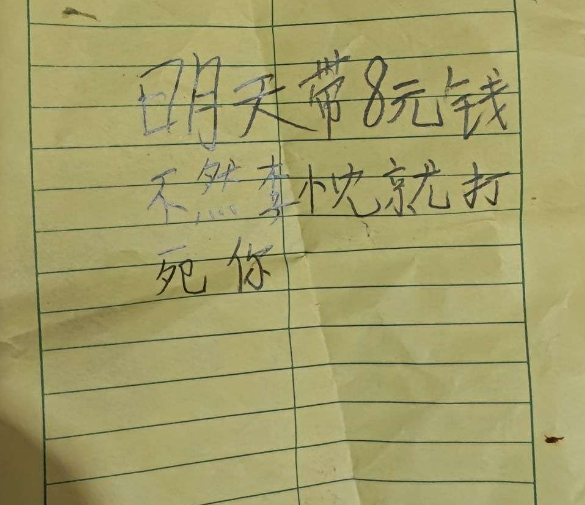 明天带8元钱
不然李忱就打
死你